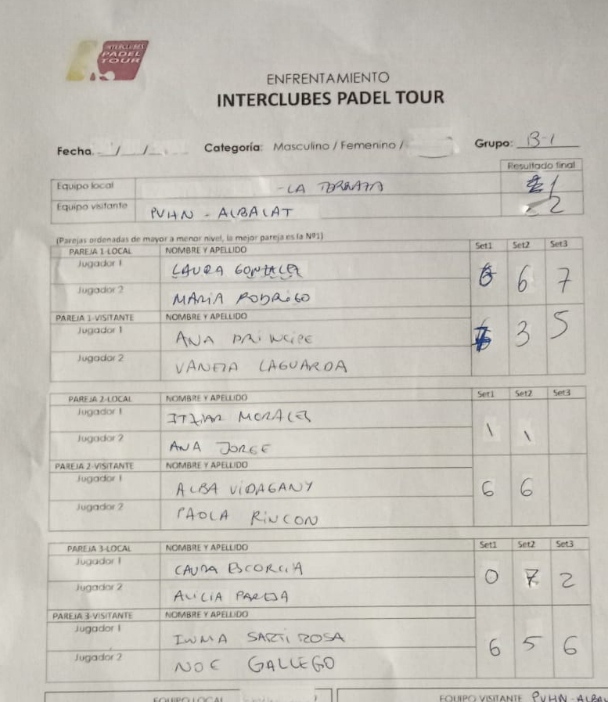 INTERCLUBES
PADEL
TOUR
ENFRENTAMIENTO
INTERCLUBES PADEL TOUR
Fecha / / Categoría: Masculino / Femenino / Grupo: B-1
Resultado final
Equipo local - LA TERRAZA 1
Equipo visitante PVHN - ALBALAT 2
(Parejas ordenadas de mayor a menor nivel, la mejor pareja es la Nº1)
PAREJA 1-LOCAL NOMBRE Y APELLIDO Set1 Set2 Set3
Jugador 1 LAURA GONZALEZ
6 6 7
Jugador 2 MARIA RODRIGO
PAREJA 1-VISITANTE NOMBRE Y APELLIDO
Jugador 1 ANA PRINCIPE
3 5
Jugador 2 VANEZA LAGUARDA
PAREJA 2-LOCAL NOMBRE Y APELLIDO Set1 Set2 Set3
Jugador 1 ITZIAR MORALES
1 1
Jugador 2 ANA JORGE
PAREJA 2-VISITANTE NOMBRE Y APELLIDO
Jugador 1 ALBA VIDAGANY
6 6
Jugador 2 PAOLA RINCON
PAREJA 3-LOCAL NOMBRE Y APELLIDO Set1 Set2 Set3
Jugador 1 LAURA ESCORCIA
0 7 2
Jugador 2 ALICIA PAREJA
PAREJA 3-VISITANTE NOMBRE Y APELLIDO
Jugador 1 INMA SARTI ROSA
6 5 6
Jugador 2 NOE GALLEGO
EQUIPO LOCAL EQUIPO VISITANTE PVHN - ALBA